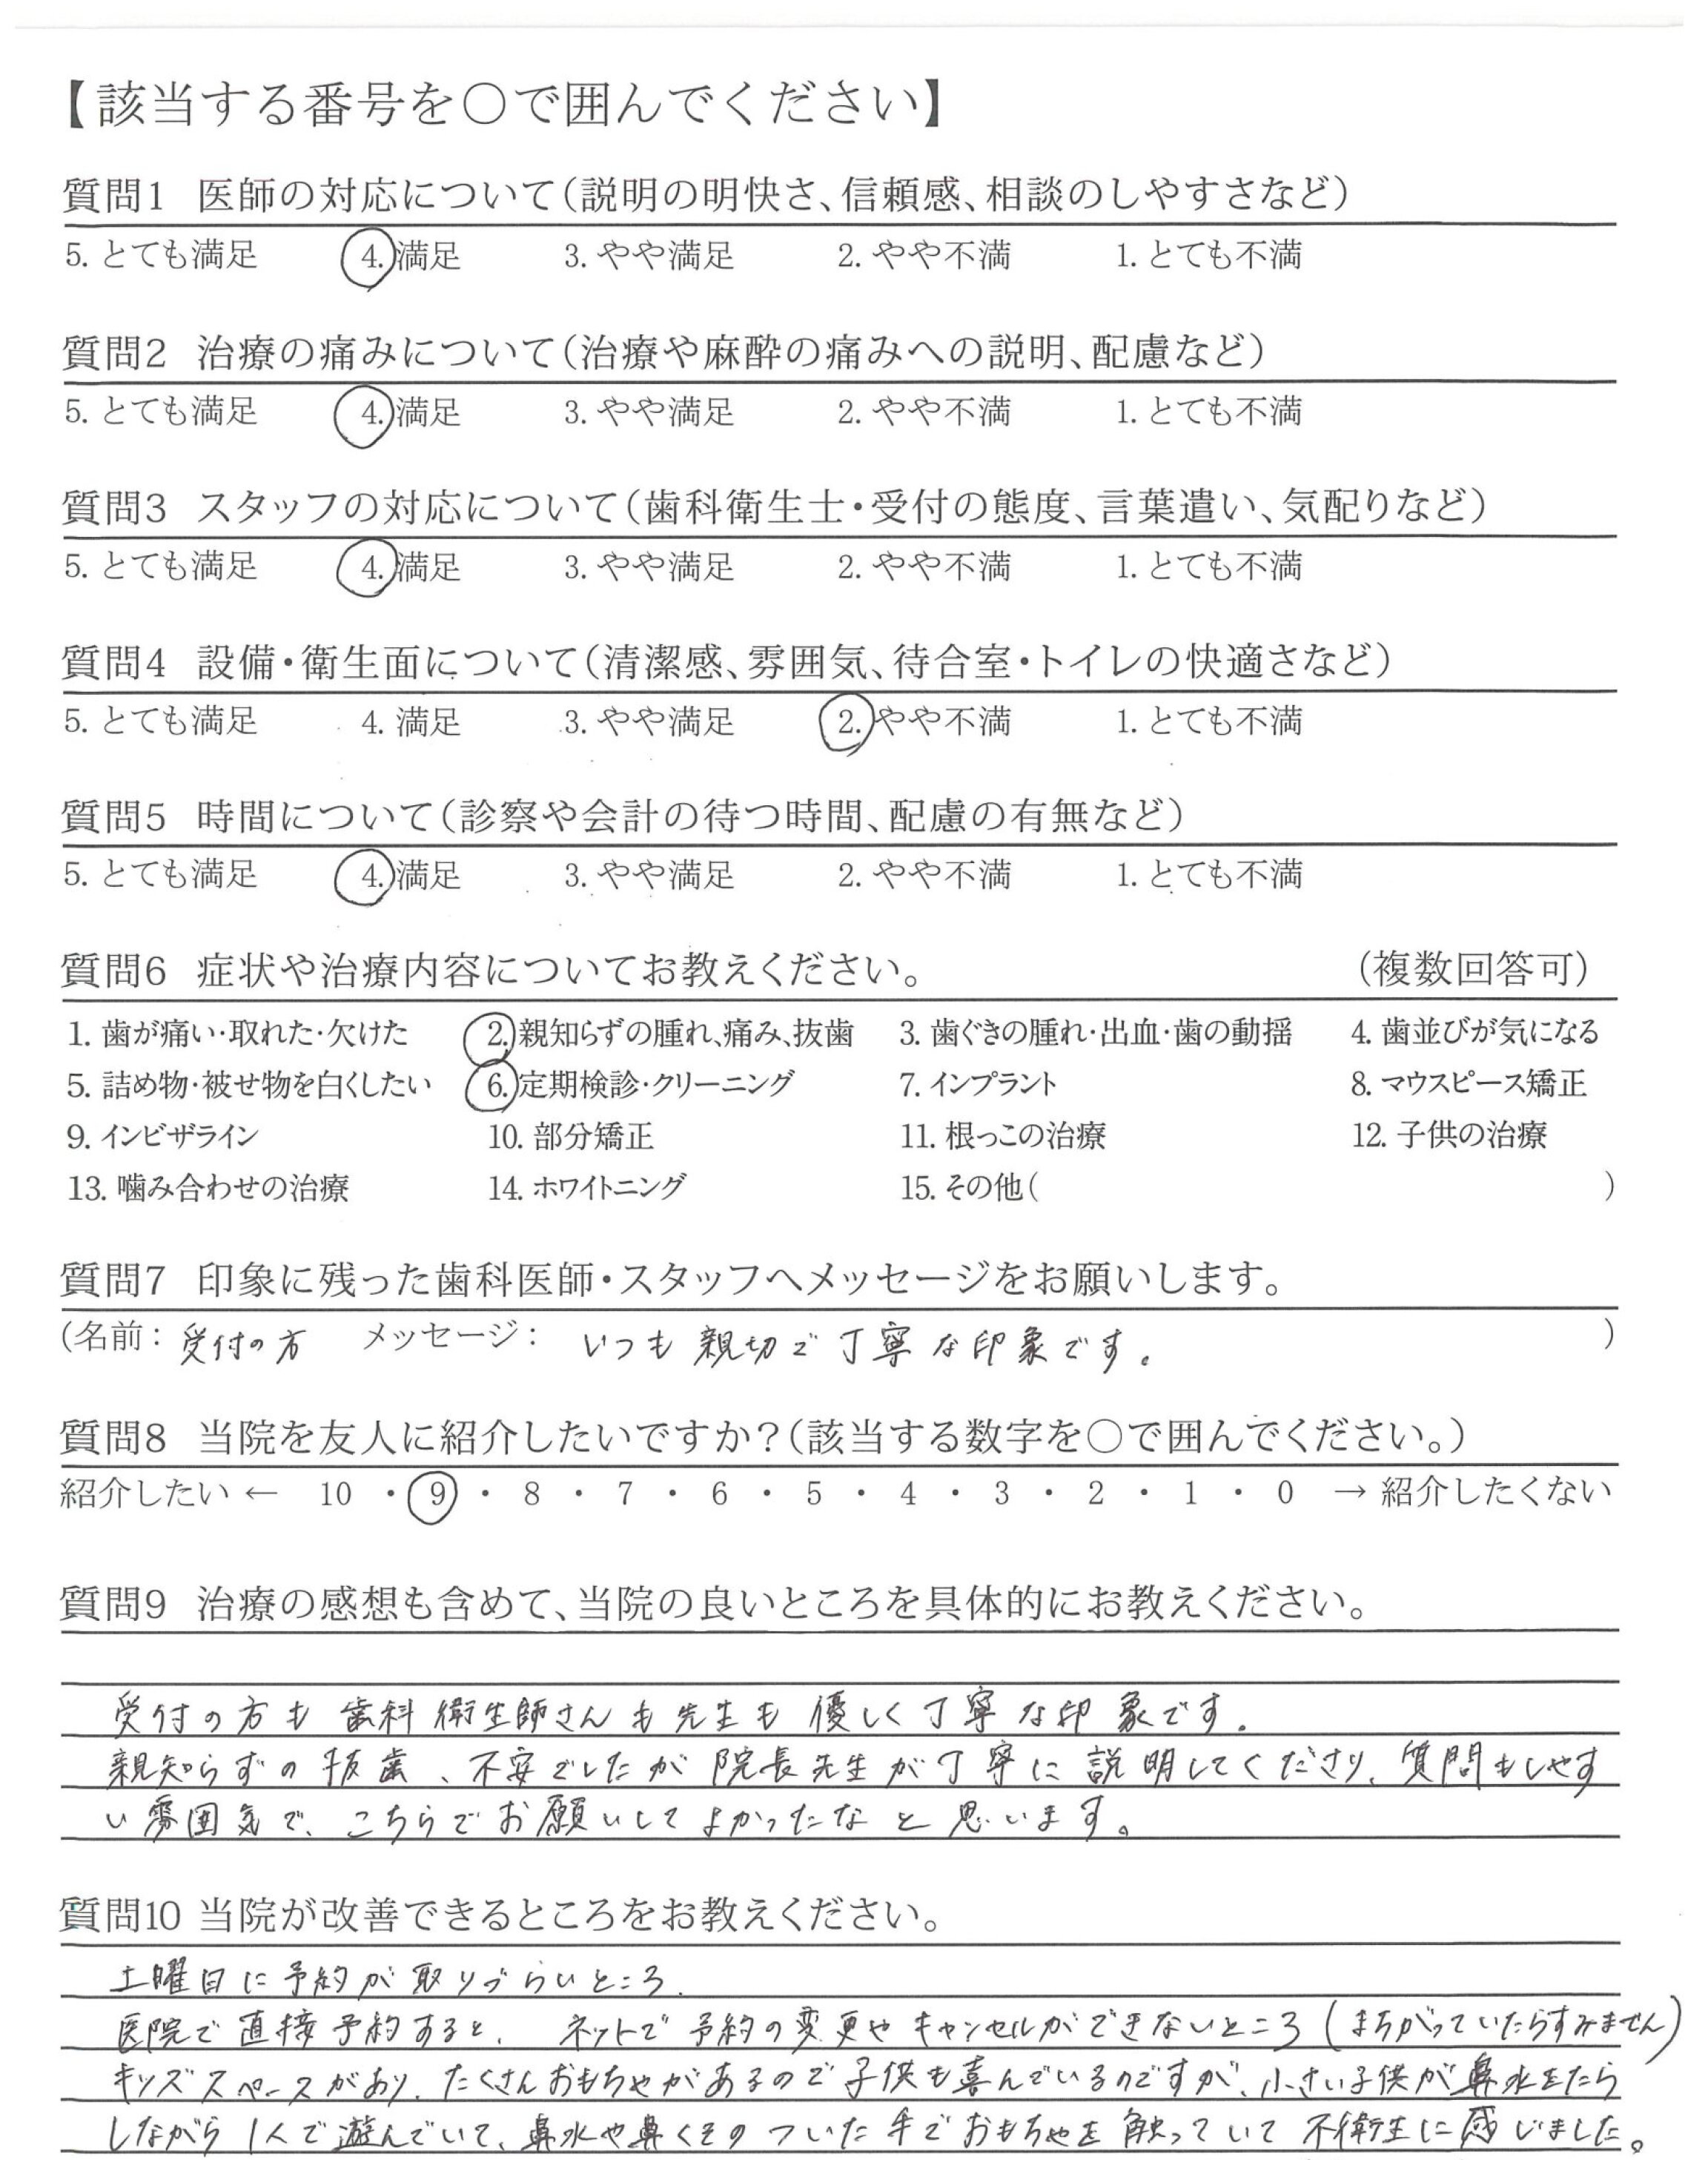 【該当する番号を○で囲んでください】
質問1 医師の対応について(説明の明快さ、信頼感、相談のしやすさなど)
5. とても満足 4. 満足 3. やや満足 2. やや不満 1. とても不満
質問2 治療の痛みについて(治療や麻酔の痛みへの説明、配慮など)
5. とても満足 4. 満足 3. やや満足 2. やや不満 1. とても不満
質問3 スタッフの対応について(歯科衛生士・受付の態度、言葉遣い、気配りなど)
5. とても満足 4. 満足 3. やや満足 2. やや不満 1. とても不満
質問4 設備・衛生面について(清潔感、雰囲気、待合室・トイレの快適さなど)
5. とても満足 4. 満足 3. やや満足 2. やや不満 1. とても不満
質問5 時間について(診察や会計の待つ時間、配慮の有無など)
5. とても満足 4. 満足 3. やや満足 2. やや不満 1. とても不満
質問6 症状や治療内容についてお教えください。 (複数回答可)
1. 歯が痛い・取れた・欠けた 2. 親知らずの腫れ、痛み、抜歯 3. 歯ぐきの腫れ・出血・歯の動揺 4. 歯並びが気になる
5. 詰め物・被せ物を白くしたい 6. 定期検診・クリーニング 7. インプラント 8. マウスピース矯正
9. インビザライン 10. 部分矯正 11. 根っこの治療 12. 子供の治療
13. 噛み合わせの治療 14. ホワイトニング 15. その他( )
質問7 印象に残った歯科医師・スタッフへメッセージをお願いします。
(名前: 受付の方 メッセージ: いつも親切で丁寧な印象です。 )
質問8 当院を友人に紹介したいですか?(該当する数字を○で囲んでください。)
紹介したい ← 10 ・ 9 ・ 8 ・ 7 ・ 6 ・ 5 ・ 4 ・ 3 ・ 2 ・ 1 ・ 0 → 紹介したくない
質問9 治療の感想も含めて、当院の良いところを具体的にお教えください。
受付の方も歯科衛生師さんも先生も優しく丁寧な印象です。
親知らずの抜歯、不安でしたが院長先生が丁寧に説明してくださり、質問もしやす
い雰囲気で、こちらでお願いしてよかったなと思います。
質問10 当院が改善できるところをお教えください。
土曜日に予約が取りづらいところ.
医院で直接予約すると、ネットで予約の変更やキャンセルができないところ(まちがっていたらすみません)
キッズスペースがあり、たくさんおもちゃがあるので子供も喜んでいるのですが、小さい子供が鼻水をたら
しながら1人で遊んでいて、鼻水や鼻くそのついた手でおもちゃを触っていて不衛生に感じました。